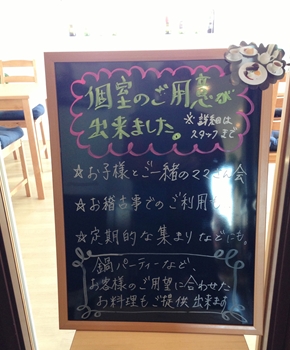 個室のご用意が
出来ました。
※詳細は
スタッフまで
☆お子様とご一緒のママ会
☆お稽古事でのご利用
☆定期的な集まりなどにも。
鍋パーティーなど、
お客様のご用望に合わせた
お料理もご提供出来ます